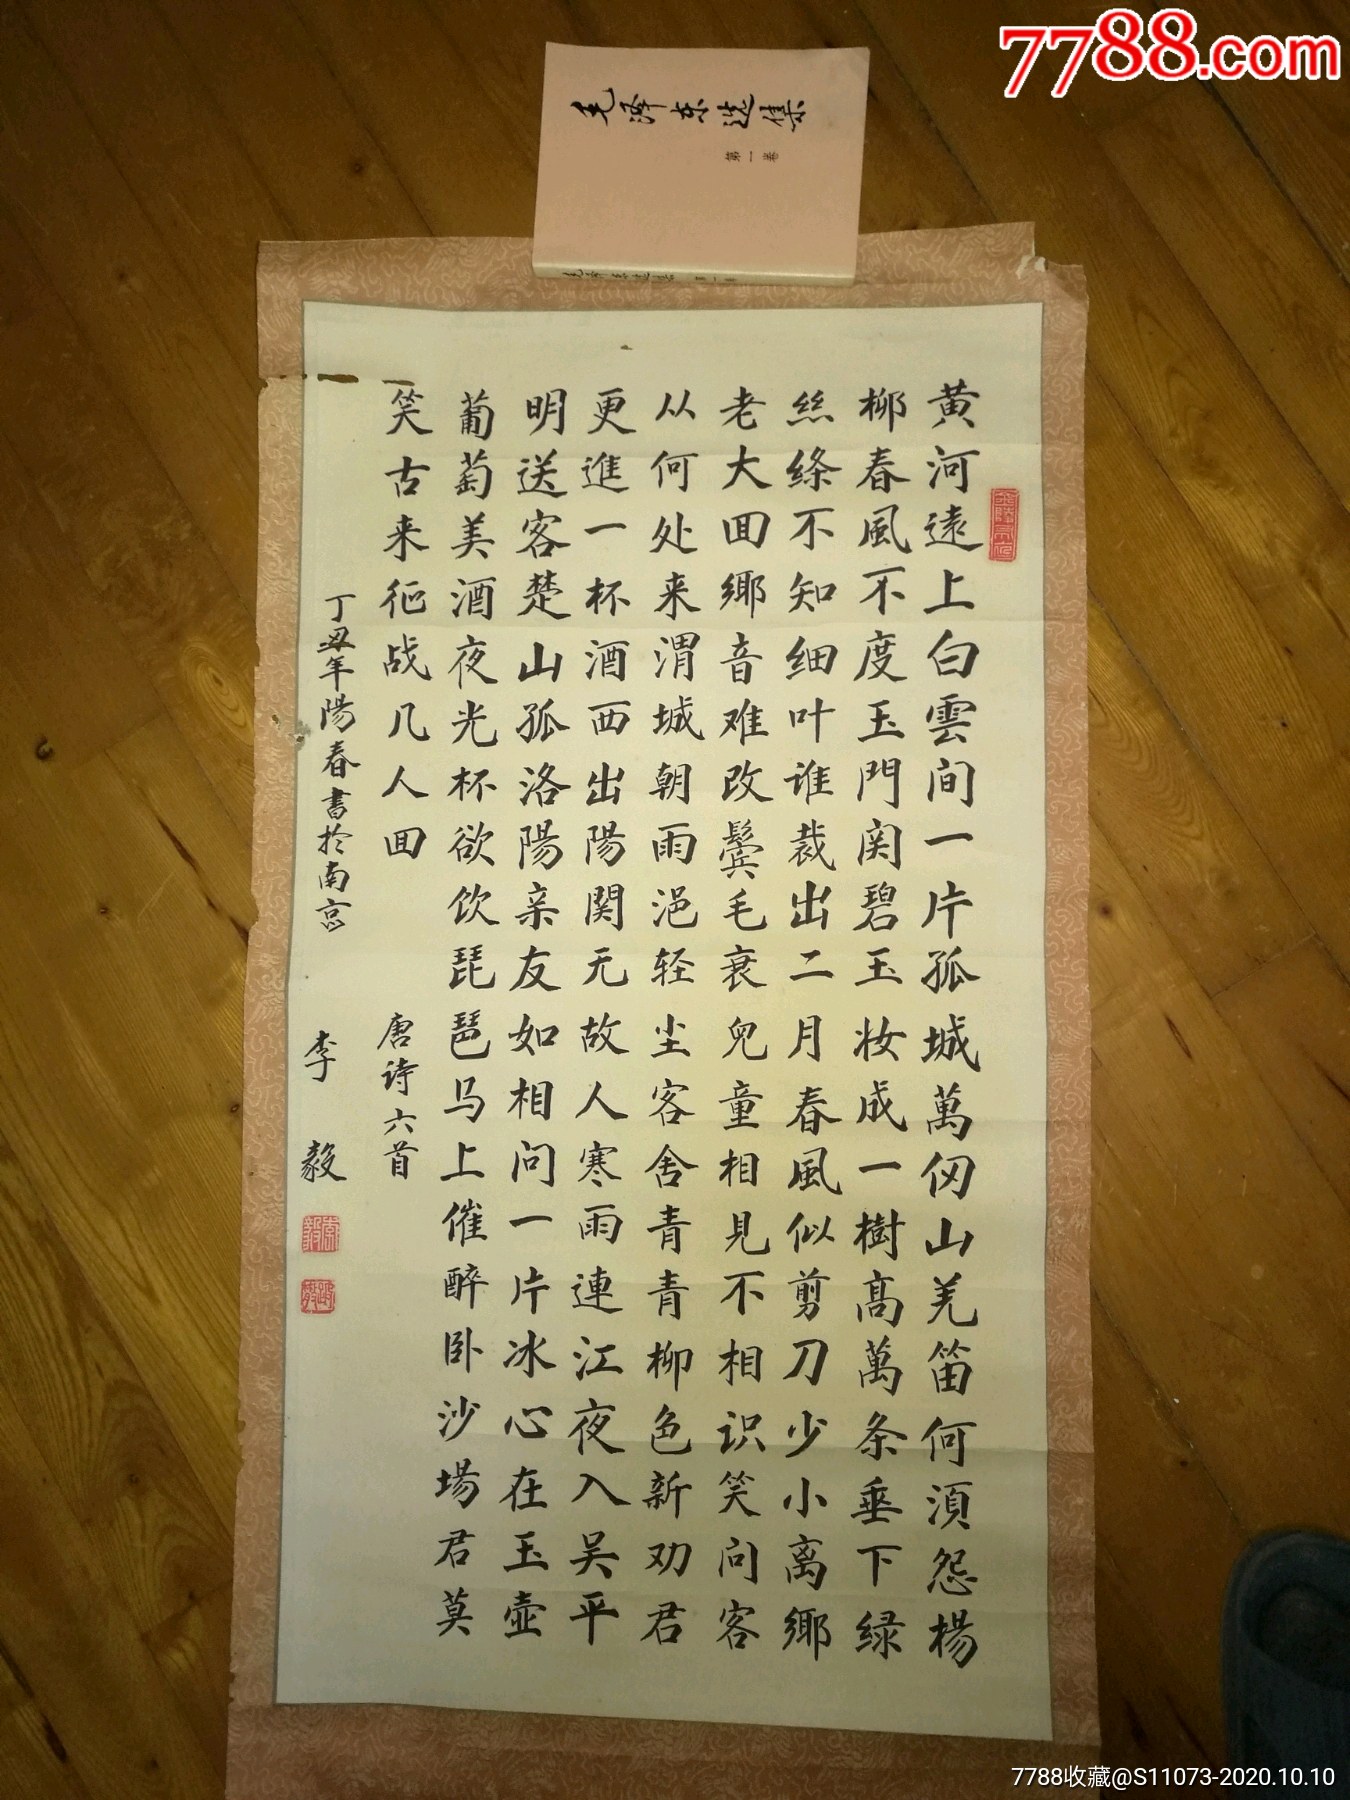 7788.com
毛泽东选集
第一卷
毛泽东选集 第一卷
黄河遠上白雲间一片孤城萬仞山羌笛何須怨楊
柳春風不度玉門関碧玉妆成一樹高萬条垂下绿
丝绦不知细叶谁裁出二月春風似剪刀少小离鄉
老大回鄉音难改鬓毛衰兒童相見不相识笑问客
从何处来渭城朝雨浥轻尘客舍青青柳色新劝君
更進一杯酒西出陽関无故人寒雨連江夜入吴平
明送客楚山孤洛陽亲友如相问一片冰心在玉壶
葡萄美酒夜光杯欲饮琵琶马上催醉卧沙場君莫
笑古来征战几人回
唐诗六首
丁丑年陽春書於南京
李毅
7788收藏@S11073-2020.10.10